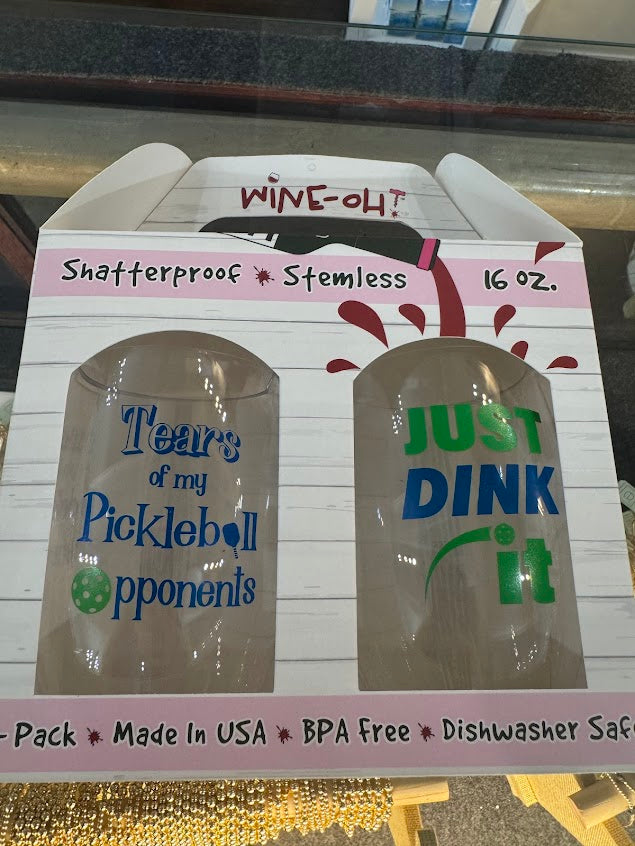 WiNE-OH!
Shatterproof * Stemless
16 oz.
Tears
of my
Pickleball
Opponents
JUST
DINK
it
-Pack * Made In USA * BPA Free * Dishwasher Safe